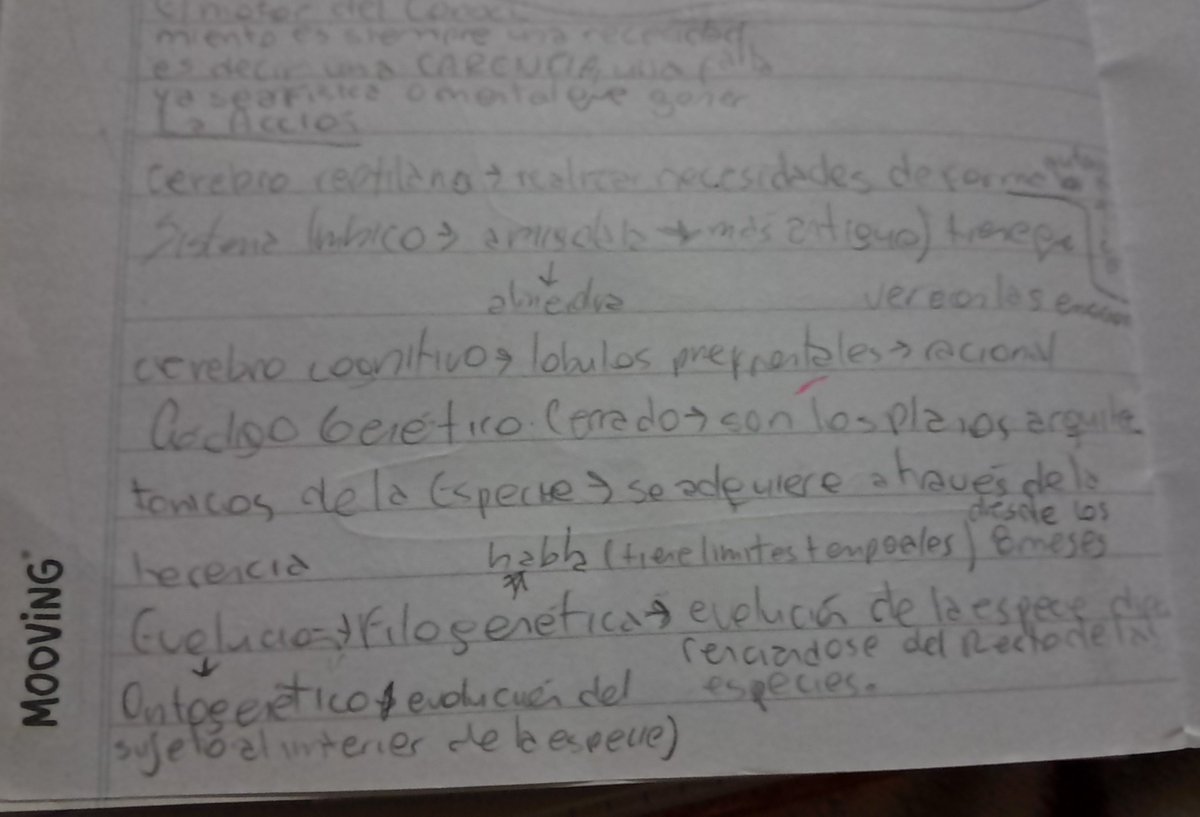 El motor del conoci
miento es siempre una necesidad
es decir una CARENCIA una falta
ya sea física o mental que gener
La Accios
cerebro reptiliano → realizar necesidades de forma
Sistema límbico → amigdala → más antiguo) tiene que
↓
almedra
ver con las emocion
cerebro cognitivo → lobulos prefrontales → racional
Codigo Genético Cerrado → son los planos arquite
tonicos de la Especie → se adequiere a través de la
desde los
herencia habla (tiene limites temporales) 8 meses
Evolucion → Filogenética → evolución de la especie dife
renciandose del Resto de las
Ontogenético → evolucuón del especies.
sujeto al interier de la especie)
MOOVING